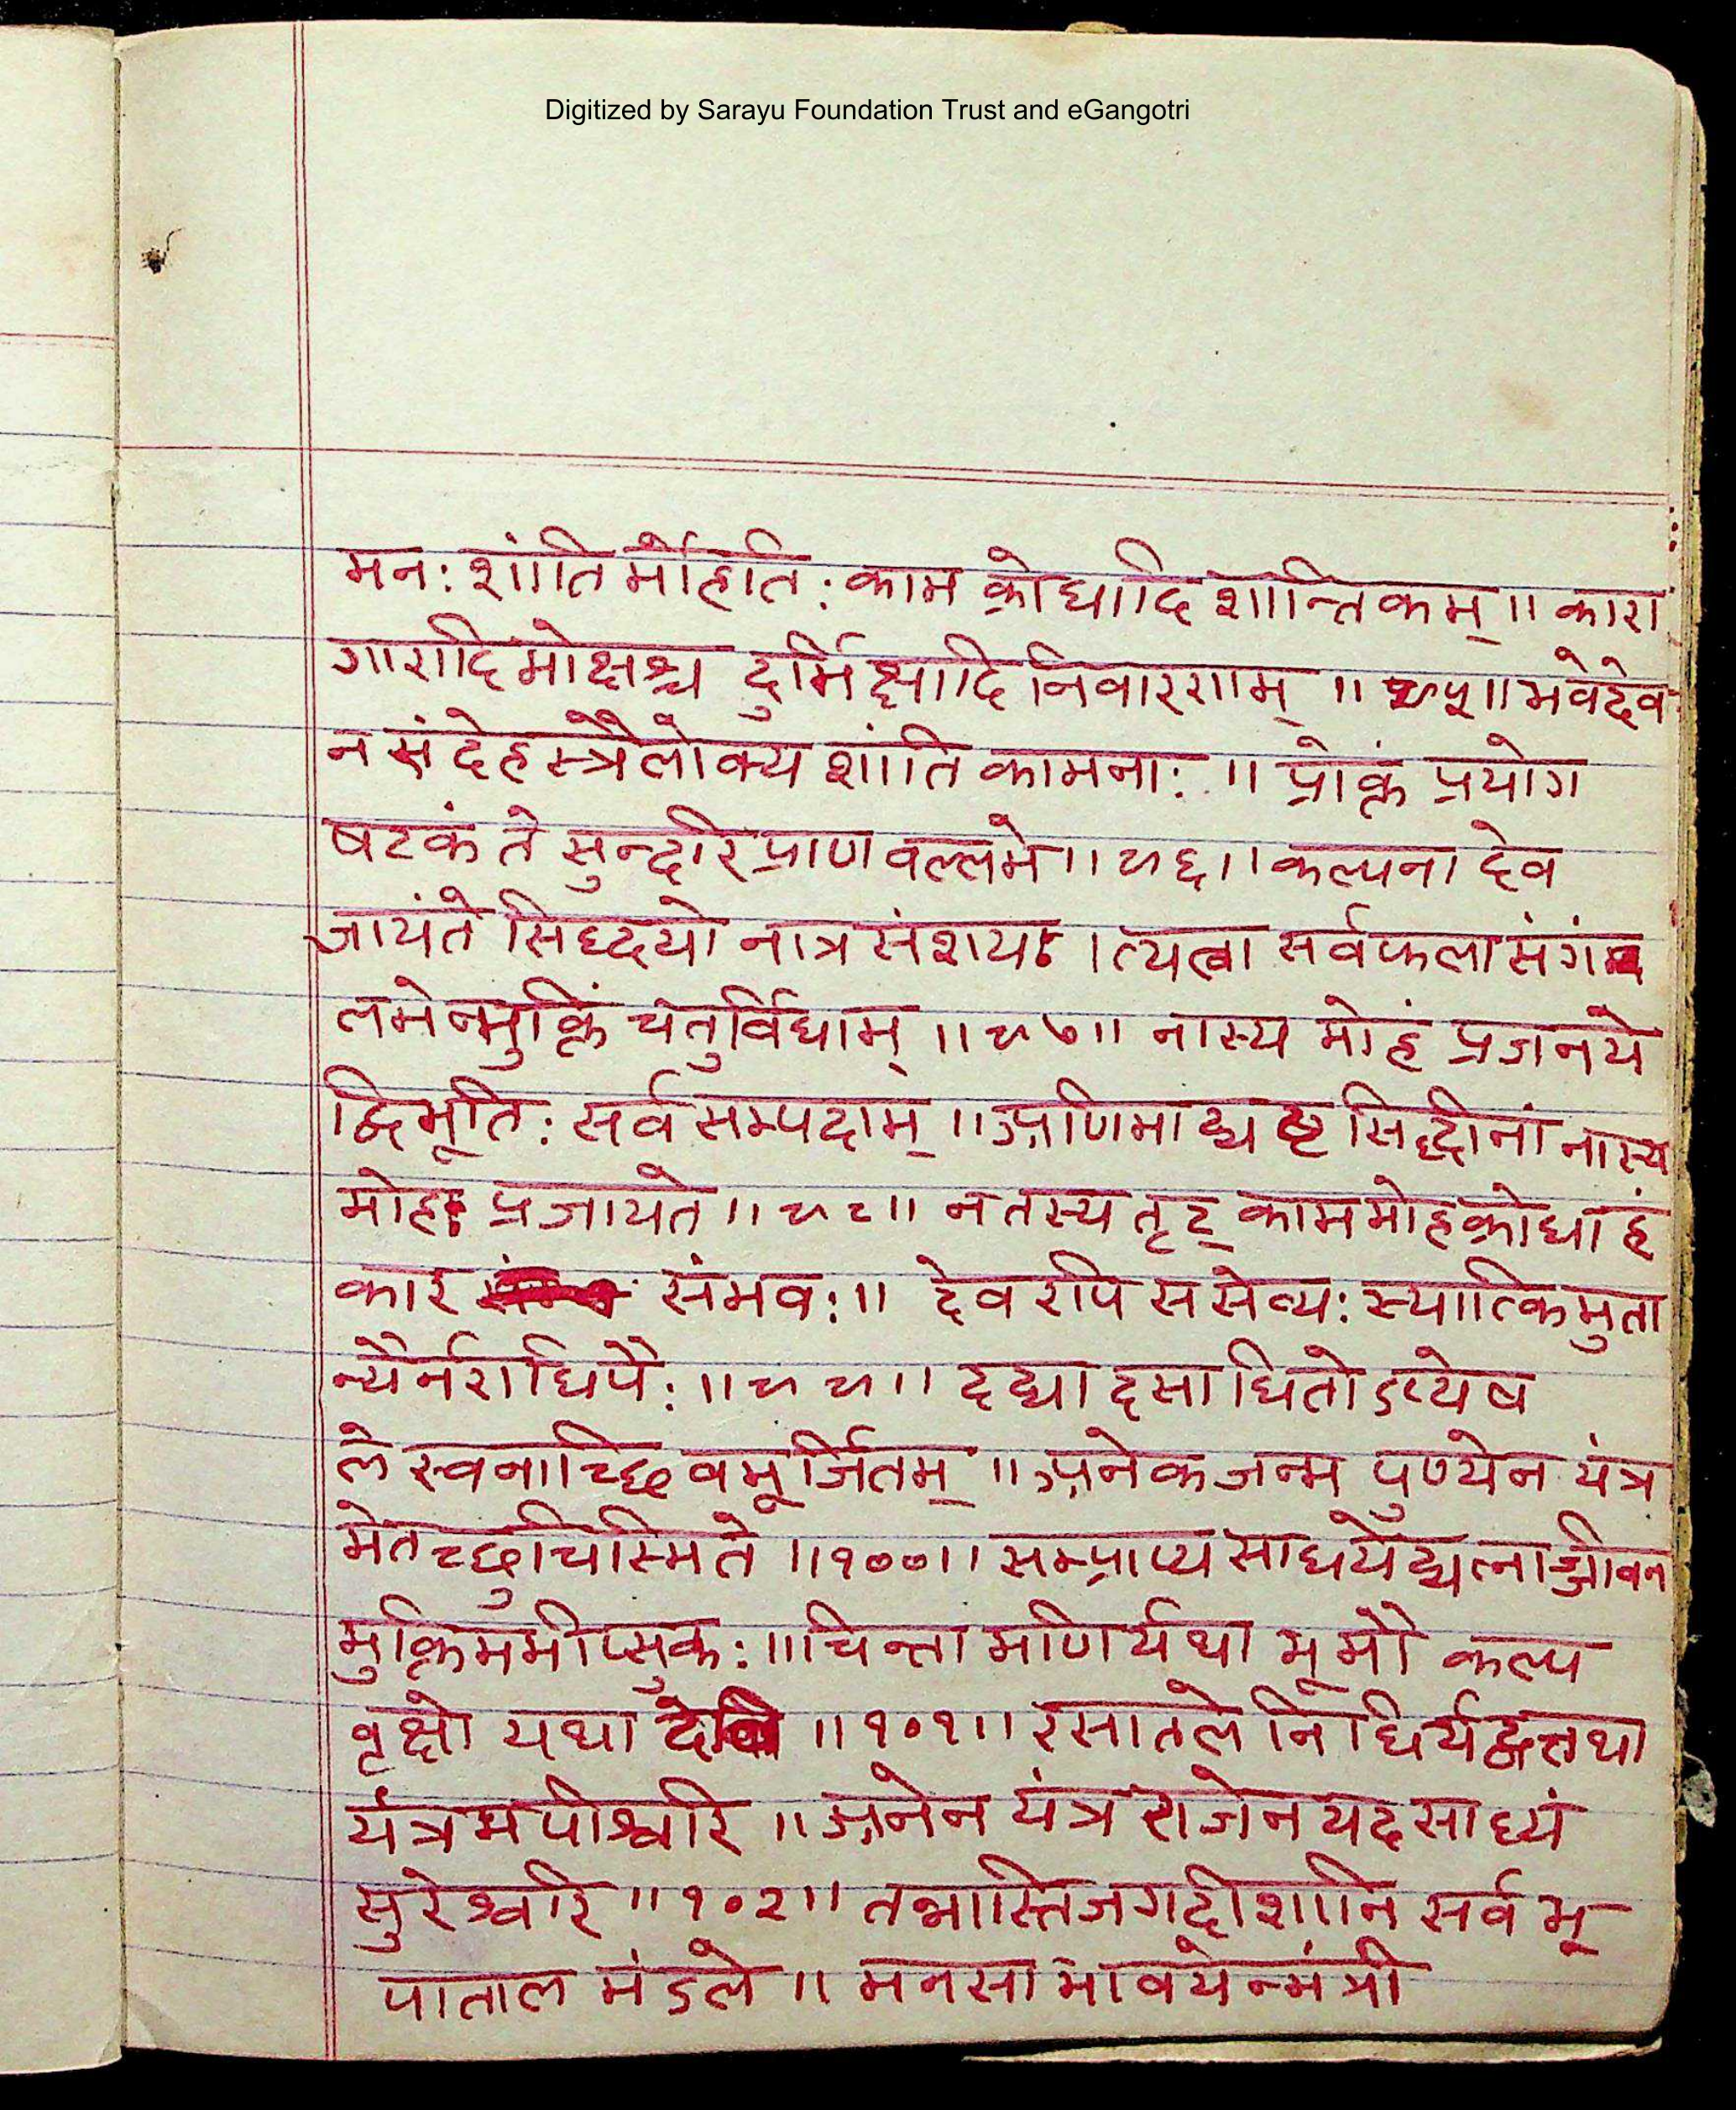 Digitized by Sarayu Foundation Trust and eGangotri
मनः शांतिर्मोहांतः काम क्रोधादि शान्तिकम् ॥ कारा
गारादिमोक्षश्च दुर्भिक्षादि निवारणम् ॥ ९५ ॥ भवेदेव
न संदेहस्त्रैलोक्य शांति कामनाः ॥ प्रोक्तं प्रयोग
षटकं ते सुन्दरि प्राण वल्लभे ॥ ९६ ॥ कल्पना देव
जायंते सिद्धयो नात्र संशयः । त्यत्वा सर्वफलासंगं
लभेन्मुक्तिं चतुर्विधाम् ॥ ९७ ॥ नास्य मोहं प्रजनये
द्विभूतिः सर्व सम्पदाम् ॥ अणिमाद्यष्ट सिद्धीनां नास्य
मोहः प्रजायते ॥ ९८ ॥ न तस्य तृट् काममोहक्रोधाहं
कार संभवः ॥ देव रपि स सेव्यः स्यात्किमुता
न्यैर्नराधिपैः ॥ ९९ ॥ दद्यादसाधितोऽप्येष
ले स्वनाच्छिवमूर्जितम् ॥ अनेकजन्म पुण्येन यंत्र
मेतच्छुचिस्मिते ॥ १०० ॥ सम्प्राप्य साधयेद्यत्नाज्जीवन
मुक्तिमभीप्सुकः ॥ चिन्तामणिर्यथा भूमौ कल्प
वृक्षो यथा देवि ॥ १०१ ॥ रसातले निधिर्यद्वत्तथा
यंत्रमपीश्वरि ॥ अनेन यंत्र राजेन यदसाध्यं
सुरेश्वरि ॥ १०२ ॥ तन्नास्ति जगदीशानि सर्व भू
पाताल मंडले ॥ मनसा भावयेन्मंत्री